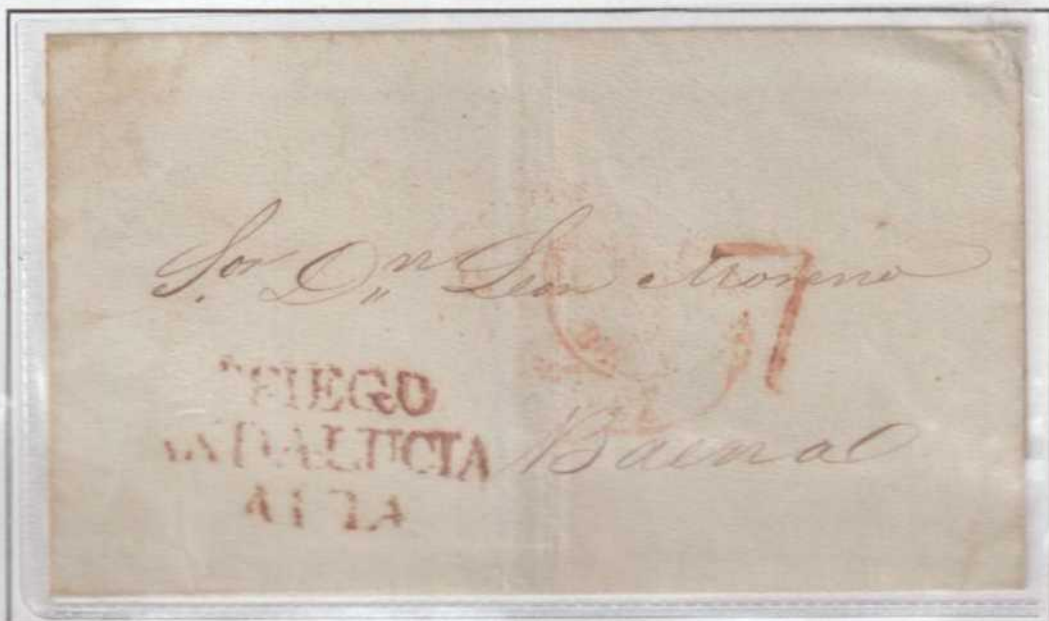 Sor. Dn Leon Moreno
7
PRIEGO
ANDALUCIA
ALTA
Baena